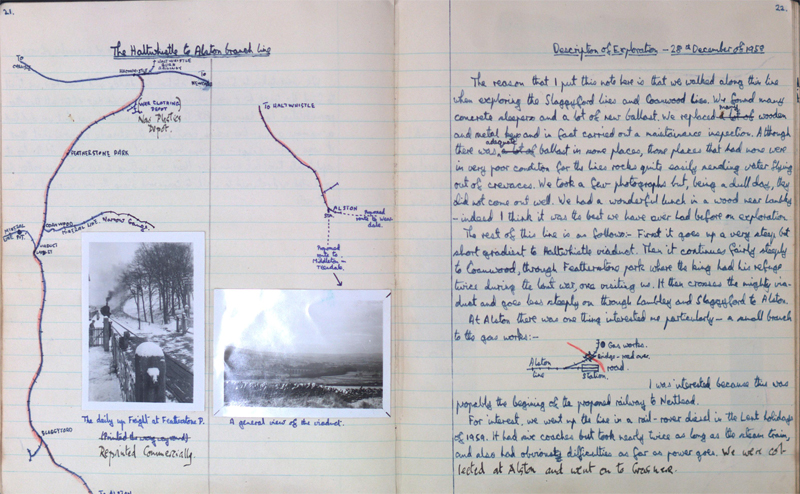 21.
The Haltwhistle to Alston branch line
To
CARLISLE
HALTWHISTLE
HALTWHISTLE
BURN
RAILWAY
To
NEWCASTLE
(WAR CLOTHING
DEPOT)
Now Plastics
Depot.
FEATHERSTONE PARK
COANWOOD
Mineral Line Narrow Gauge
MINERAL
LINE
LAMBLEY
SLAGGYFORD
TO ALSTON
The daily up Freight at Featherstone P.
(Printed the wrong way round)
Reprinted Commercially.
To HALTWHISTLE
ALSTON
Proposed
route to Wear-
dale.
Proposed
route to
Middleton-
Teesdale.
A general view of the viaduct.
22.
Description of Exploration - 28th December of 1958
The reason that I put this note here is that we walked along this line
when exploring the Slaggyford lines and Coanwood Lines. We found many
concrete sleepers and a lot of new ballast. We replaced a lot of many wooden
and metal keys and in fact carried out a maintenance inspection. Although
there was a lot of adequate ballast in some places, those places that had none were
in very poor condition for the lines rocks quite easily sending water flying
out of crevaces. We took a few photographs but, being a dull day, they
did not come out well. We had a wonderful lunch in a wood near Lambley
- indeed I think it was the best we have ever had before on exploration.
The rest of this line is as follows:- First it goes up a very steep, but
short gradient to Haltwhistle viaduct. Then it continues fairly steeply
to Coanwood, through Featherstone park where the king had his refuge
twice during the last war, once visiting us. It then crosses the mighty via-
duct and goes less steeply on through Lambley and Slaggyford to Alston.
At Alston there was one thing interested me particularly - a small branch
to the gas works:-
Gas works.
bridge - road over.
road.
Alston
line
Station.
I was interested because this was
propebly the begining of the proposed railway to Nenthead.
For interest, we went up the line in a rail-rover diesel in the Lent holidays
of 1959. It had six coaches but took nearly twice as long as the steam train,
and also had obviously difficulties as far as power goes. We were col-
lected at Alston and went on to Grasmere.